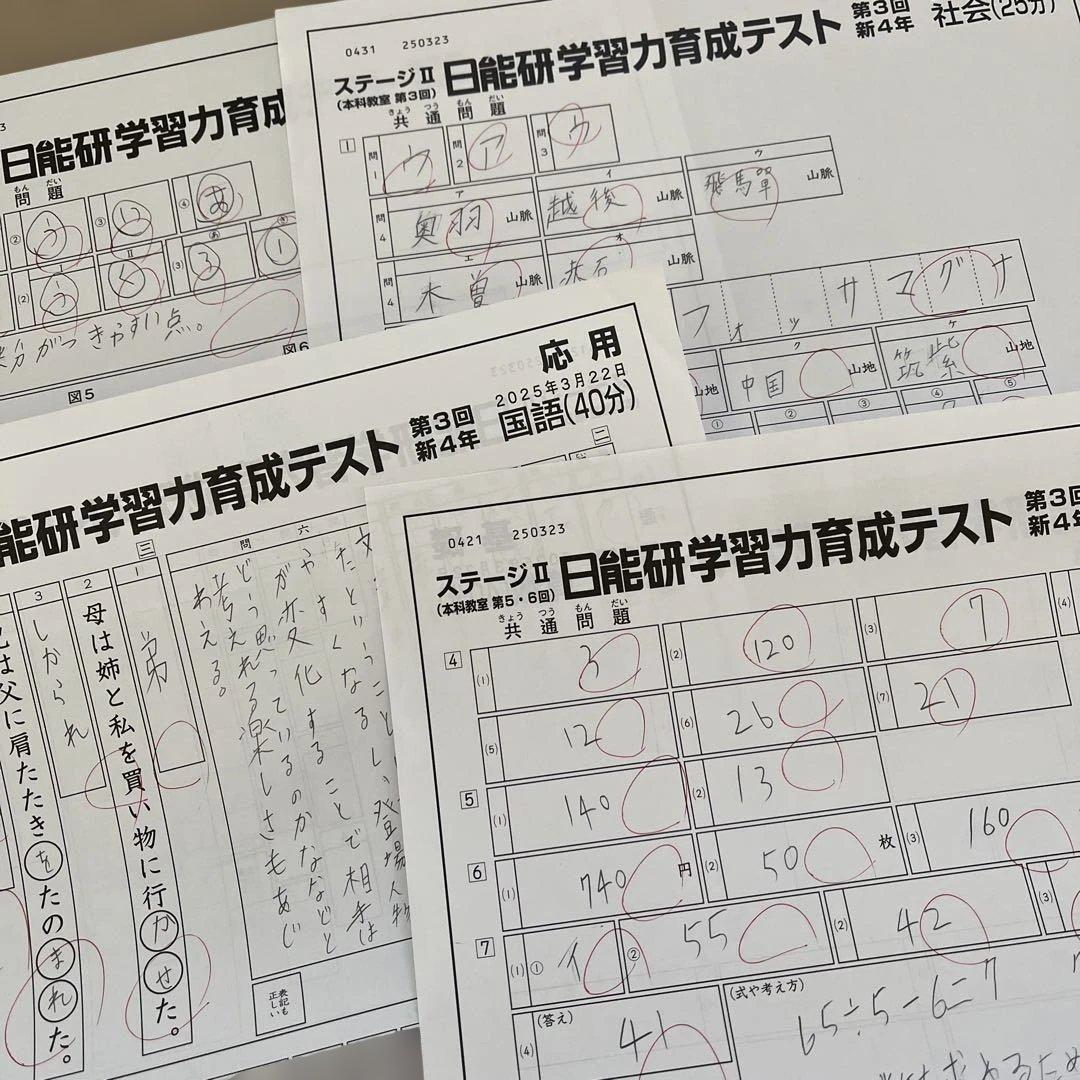 日能研学習力育成
問題
もん だい
② う ③ い ④ あ
(2) う え (3) る ①
がつきやすい点。
図6
図5
0431 250323
ステージⅡ
(本科教室 第3回)
日能研学習力育成テスト
第3回
新4年
社会(25分)
きょう つう もん だい
共通問題
1 問1 ウ 問2 ア 問3 ウ
問4 ア 奥羽 山脈 イ 越後 山脈 ウ 飛騨 山脈
問4 エ 木曽 山脈 オ 赤石 山脈
フォッサマグナ
山地 ク 中国 山地 ケ 筑紫 山地
① ② ③ ④ ⑤
応用
2025年3月22日
能研学習力育成テスト
第3回
新4年
国語(40分)
二
六
問
たというってことしい登場人物
やすくなる
が変化することで相手は
どう思っているのかななどと
考えれる楽しさもあじ
わえる。
表記も正しい
三
1 弟
母は姉と私を買い物に行かせた。
2
しかられ
3
は父に肩たたきをたのまれた。
0421 250323
ステージⅡ
(本科教室 第5・6回)
日能研学習力育成テスト
第3回
新4年
きょう つう もん だい
共通問題
4 (1) 3 (2) 120 (3) 7 (4)
(5) 12 (6) 26 (7) 21
5 (1) 140 (2) 13
6 (1) 740 円 (2) 50 枚 (3) 160
7 (1) ① イ ② 55 (2) 42 (3)
(4) (答え) 41 (式や考え方) 65÷5-6=7